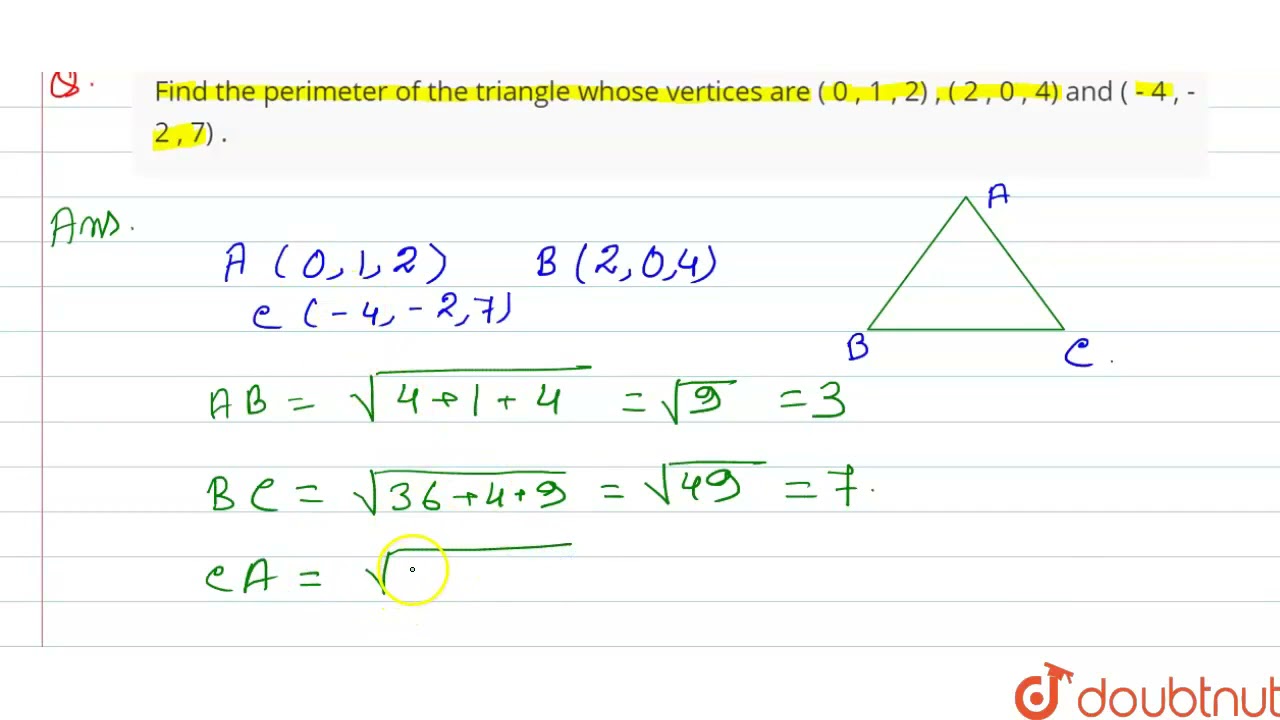 Q. Find the perimeter of the triangle whose vertices are ( 0 , 1 , 2) , ( 2 , 0 , 4) and ( - 4 , -
2 , 7) .
A
Ans.
A (0, 1, 2) B (2, 0, 4)
C (-4, -2, 7)
B C .
AB = √4+1+4 = √9 = 3
BC = √36+4+9 = √49 = 7.
CA = √
doubtnut